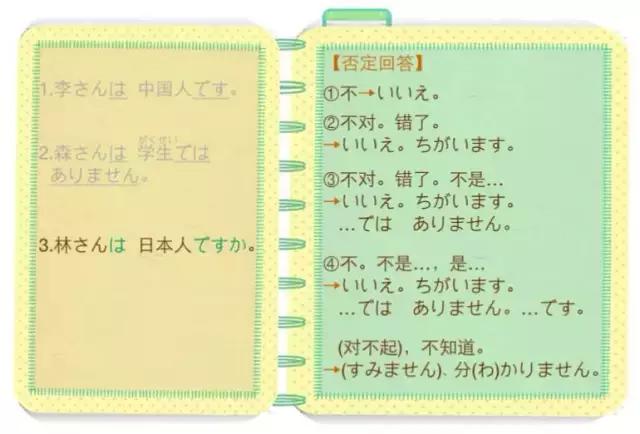 1.李さんは 中国人です。
がくせい
2.森さんは 学生では
ありません。
3.林さんは 日本人ですか。
【否定回答】
①不→いいえ。
②不对。错了。
→いいえ。ちがいます。
③不对。错了。不是…
→いいえ。ちがいます。
…では ありません。
④不。不是…，是…
→いいえ。ちがいます。
…では ありません。…です。
(对不起)，不知道。
→(すみません)、分(わ)かりません。